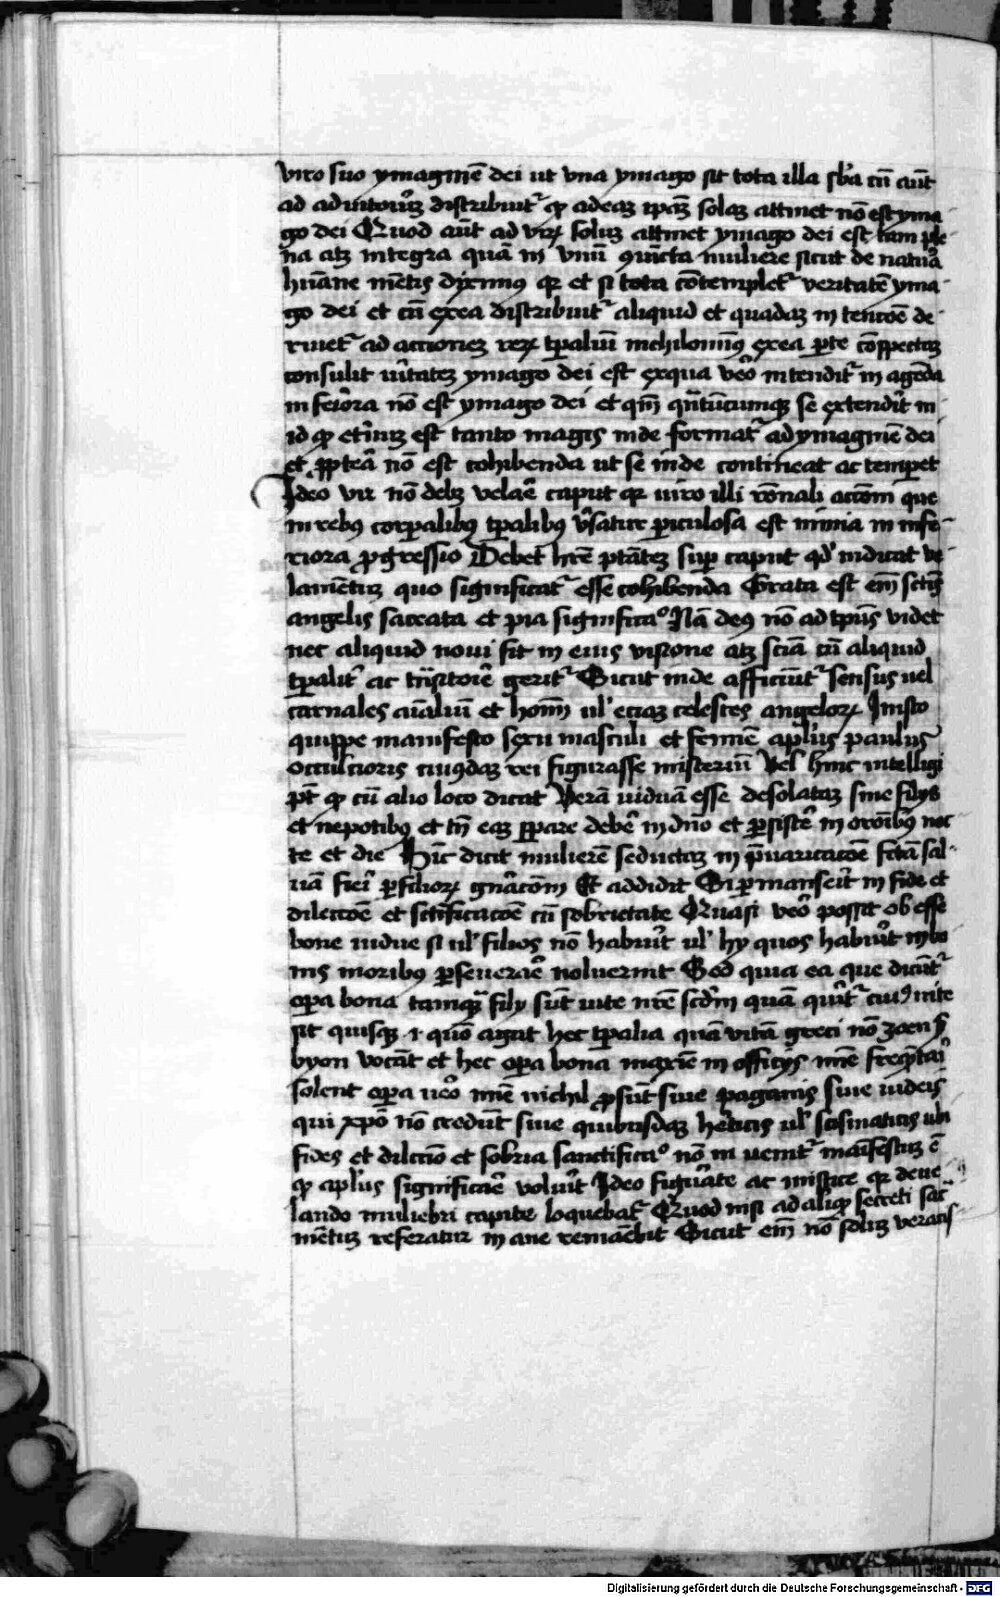 viro suo ymaginē dei ut vna ymago sit tota illa sb̄a cū aūt
ad adiutoriū distribuit᷑ qꝫ ad eaꝫ ip̄aꝫ solaꝫ attinet nō est yma-
go dei Quod aūt ad virū soluꝫ attinet ymago dei est tam ple-
na atꝫ integra quā in vnū ꝯiūcta muliere sicut de natura
hūane mētis diximꝰ qꝛ et si tota cōtemplet᷑ veritatē yma-
go dei et cū ex ea distribuit᷑ aliquid et quadaꝫ intencōe de-
riuet᷑ ad actioneꝫ reꝝ tꝑaliū nichilominꝰ ex ea ꝑte cōspectaꝫ
consulit vītateꝫ ymago dei est ex qua vēo intendit᷑ in agēda
inferiora nō est ymago dei et qm̄ quātūcumqꝫ se extendit in
id qꝫ et̄nuꝫ est tanto magis inde format᷑ ad ymaginē dei
et ꝓpteā nō est cohibenda ut se inde contineat ac temperet
Ideo vir nō debꝫ velaē caput qꝛ viro illi rōnali accōni que
in rebꝰ corꝑalibꝰ tꝑalibꝰ v̄satur ꝑiculosa est nimia in infe-
riora ꝓgressio Debet hr̄e ptāteꝫ suꝑ caput qd' indicat ve-
lamētuꝫ quo significat᷑ esse cohibenda Grata est em̄ sctīs
angelis sacrata et pia significaᵒ Nā deꝰ nō ad tp̄us videt
nec aliquid noui fit in eius visione atꝫ sciā cū aliquid
tꝑalit᷑ ac trāsitorie gerit᷑ Sicut inde afficiūt᷑ sensus vel
carnales aīaliū et homī ul' eciaꝫ celestes angeloꝝ In isto
quippe manifesto sexu masculi et femine apl̄us paulus
occulcioris cuiꝰdaꝫ rei figurasse misteriū Vel hinc intelligi
pt̄ qꝫ cū alio loco dicat Verā viduā esse desolataꝫ sine filijs
et nepotibꝰ et tn̄ eaꝫ sꝑare debē in dn̄o et ꝑsistē in orōibꝰ noc-
te et die Hīc dicit mulierē seductaꝫ in p̄uaricacōe fctā sal-
uā fieri ꝑ filioꝝ gn̄acōm Et addidit Si ꝑmanseīt in fide et
dilectōe et sctīficacōe cū sobrietate Quasi vēo possit obesse
bone vidue si ul' filios nō habuīt ul' hy quos habuīt in bo
nis moribꝰ ꝑseueraē noluerint Sed quia ea que dicūt᷑
oꝑa bona tamquā filij sūt vite nr̄e scd̄m quā quīt᷑ cuiꝰ vite
sit quisqꝫ .i. quō agat hec tꝑalia quā vitā greci nō zoen s;
byon vocāt et hec oꝑa bona maxīe in officijs mīe freq̄ntaī
solent oꝑa vēo mīe nichil ꝓsūt siue paganis siue iudeis
qui xp̄o nō credūt siue quibusdaꝫ hēticis ul' scismaticis ubi
fides et dilctīo et sobria sanctificaᵒ nō inuenit᷑ māifestuꝫ ē
qꝫ apl̄us significaē voluīt Ideo figurāte ac mistice qꝛ de ve-
lando muliebri capite loquebat᷑ Quod nisi ad aliqꝫ secreti sac-
mētuꝫ referatur inane remanebit Sicut em̄ nō soluꝫ veracis